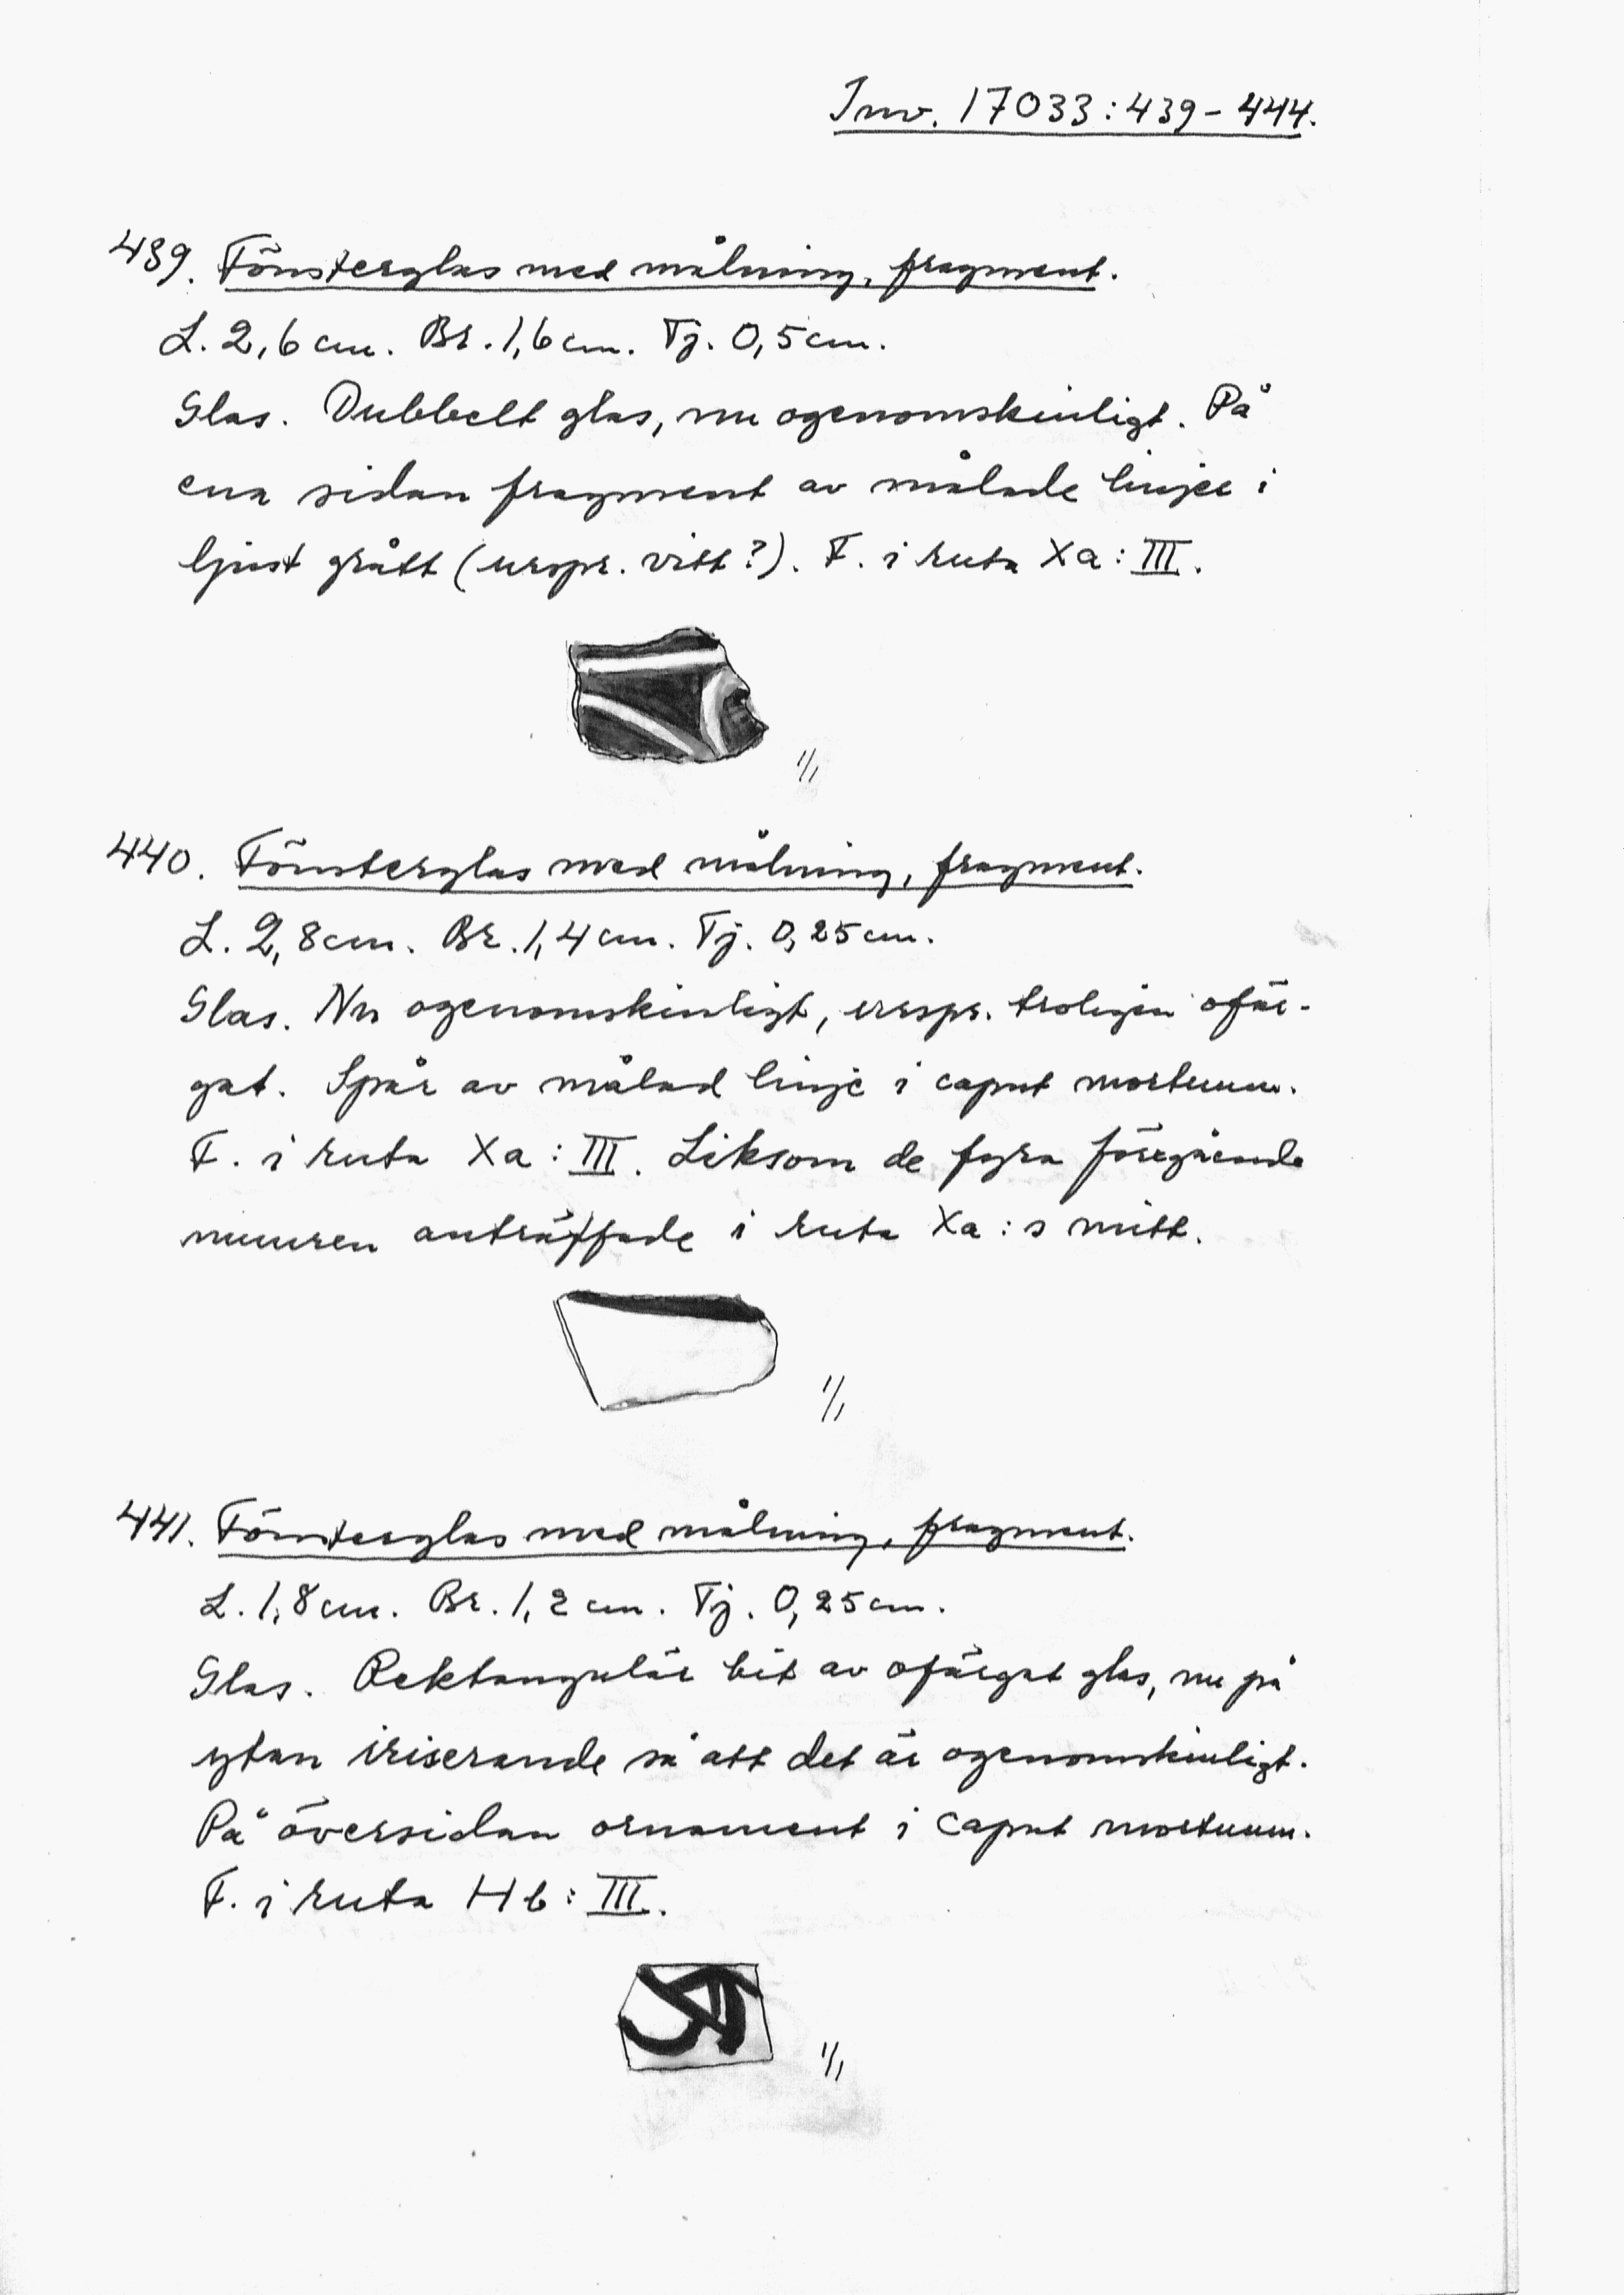 Inv. 17033:439-444.
439. Fönsterglas med målning, fragment.
L. 2,6 cm. Br. 1,6 cm. Tj. 0,5 cm.
Glas. Dubbelt glas, nu ogenomskinligt. På
ena sidan fragment av målade linjer i
ljust grått (urspr. vitt?). F. i ruta Xa: III.
1/1
440. Fönsterglas med målning, fragment.
L. 2,8 cm. Br. 1,4 cm. Tj. 0,25 cm.
Glas. Nu ogenomskinligt, urspr. troligen ofär-
gat. Spår av målad linje i caput mortuum.
F. i ruta Xa: III. Liksom de fyra föregående
numren anträffade i ruta Xa:s mitt.
1/1
441. Fönsterglas med målning, fragment.
L. 1,8 cm. Br. 1,2 cm. Tj. 0,25 cm.
Glas. Rektangulär bit av ofärgat glas, nu på
ytan iriserande så att det är ogenomskinligt.
På översidan ornament i caput mortuum.
F. i ruta Hb: III.
1/1